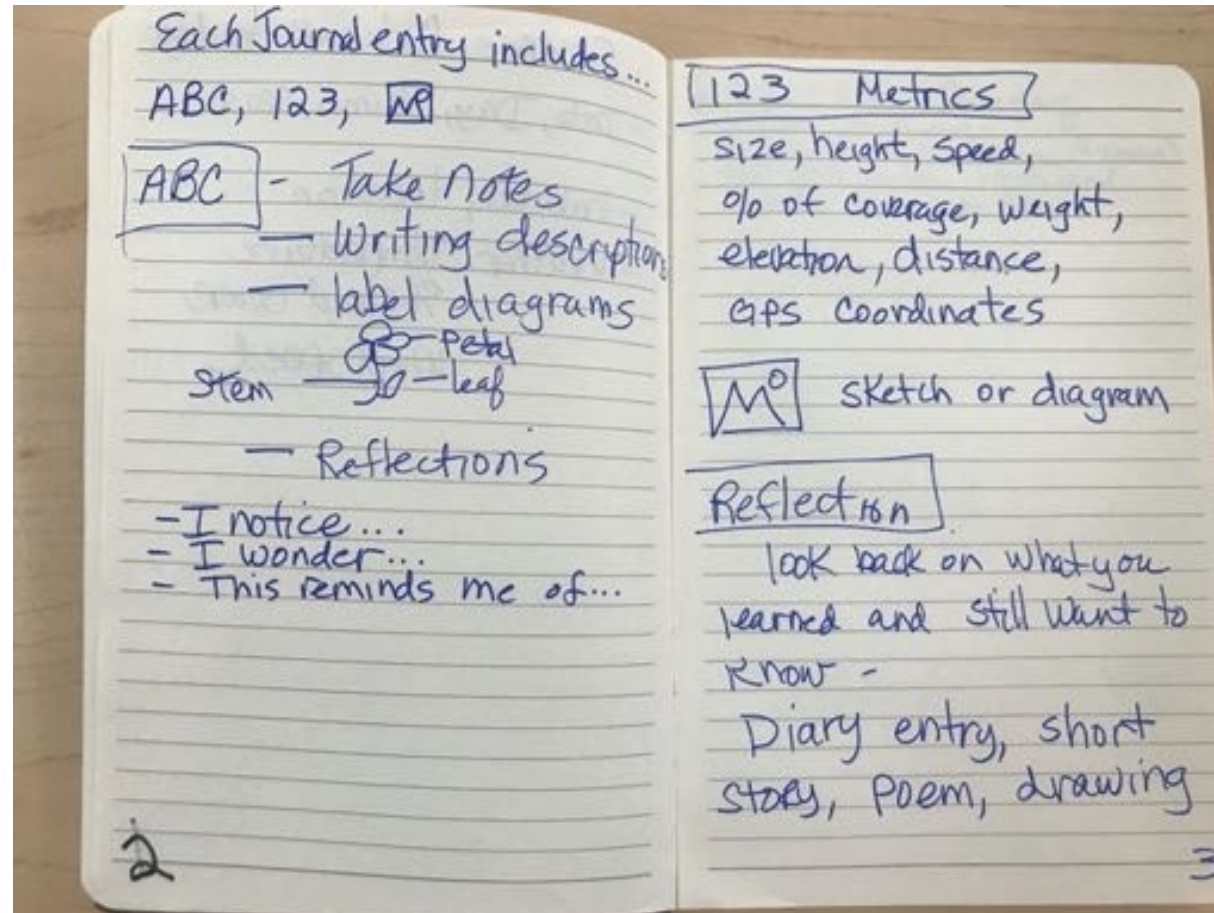 Each Journal entry includes...
ABC, 123,
ABC - Take Notes
— Writing descriptions
— label diagrams
Petal
Stem — leaf
— Reflections
- I notice...
- I wonder...
- This reminds me of...
2
123 Metrics
size, height, speed,
% of coverage, weight,
elevation, distance,
GPS coordinates
sketch or diagram
Reflection
look back on what you
learned and still want to
know -
Diary entry, short
story, poem, drawing
3